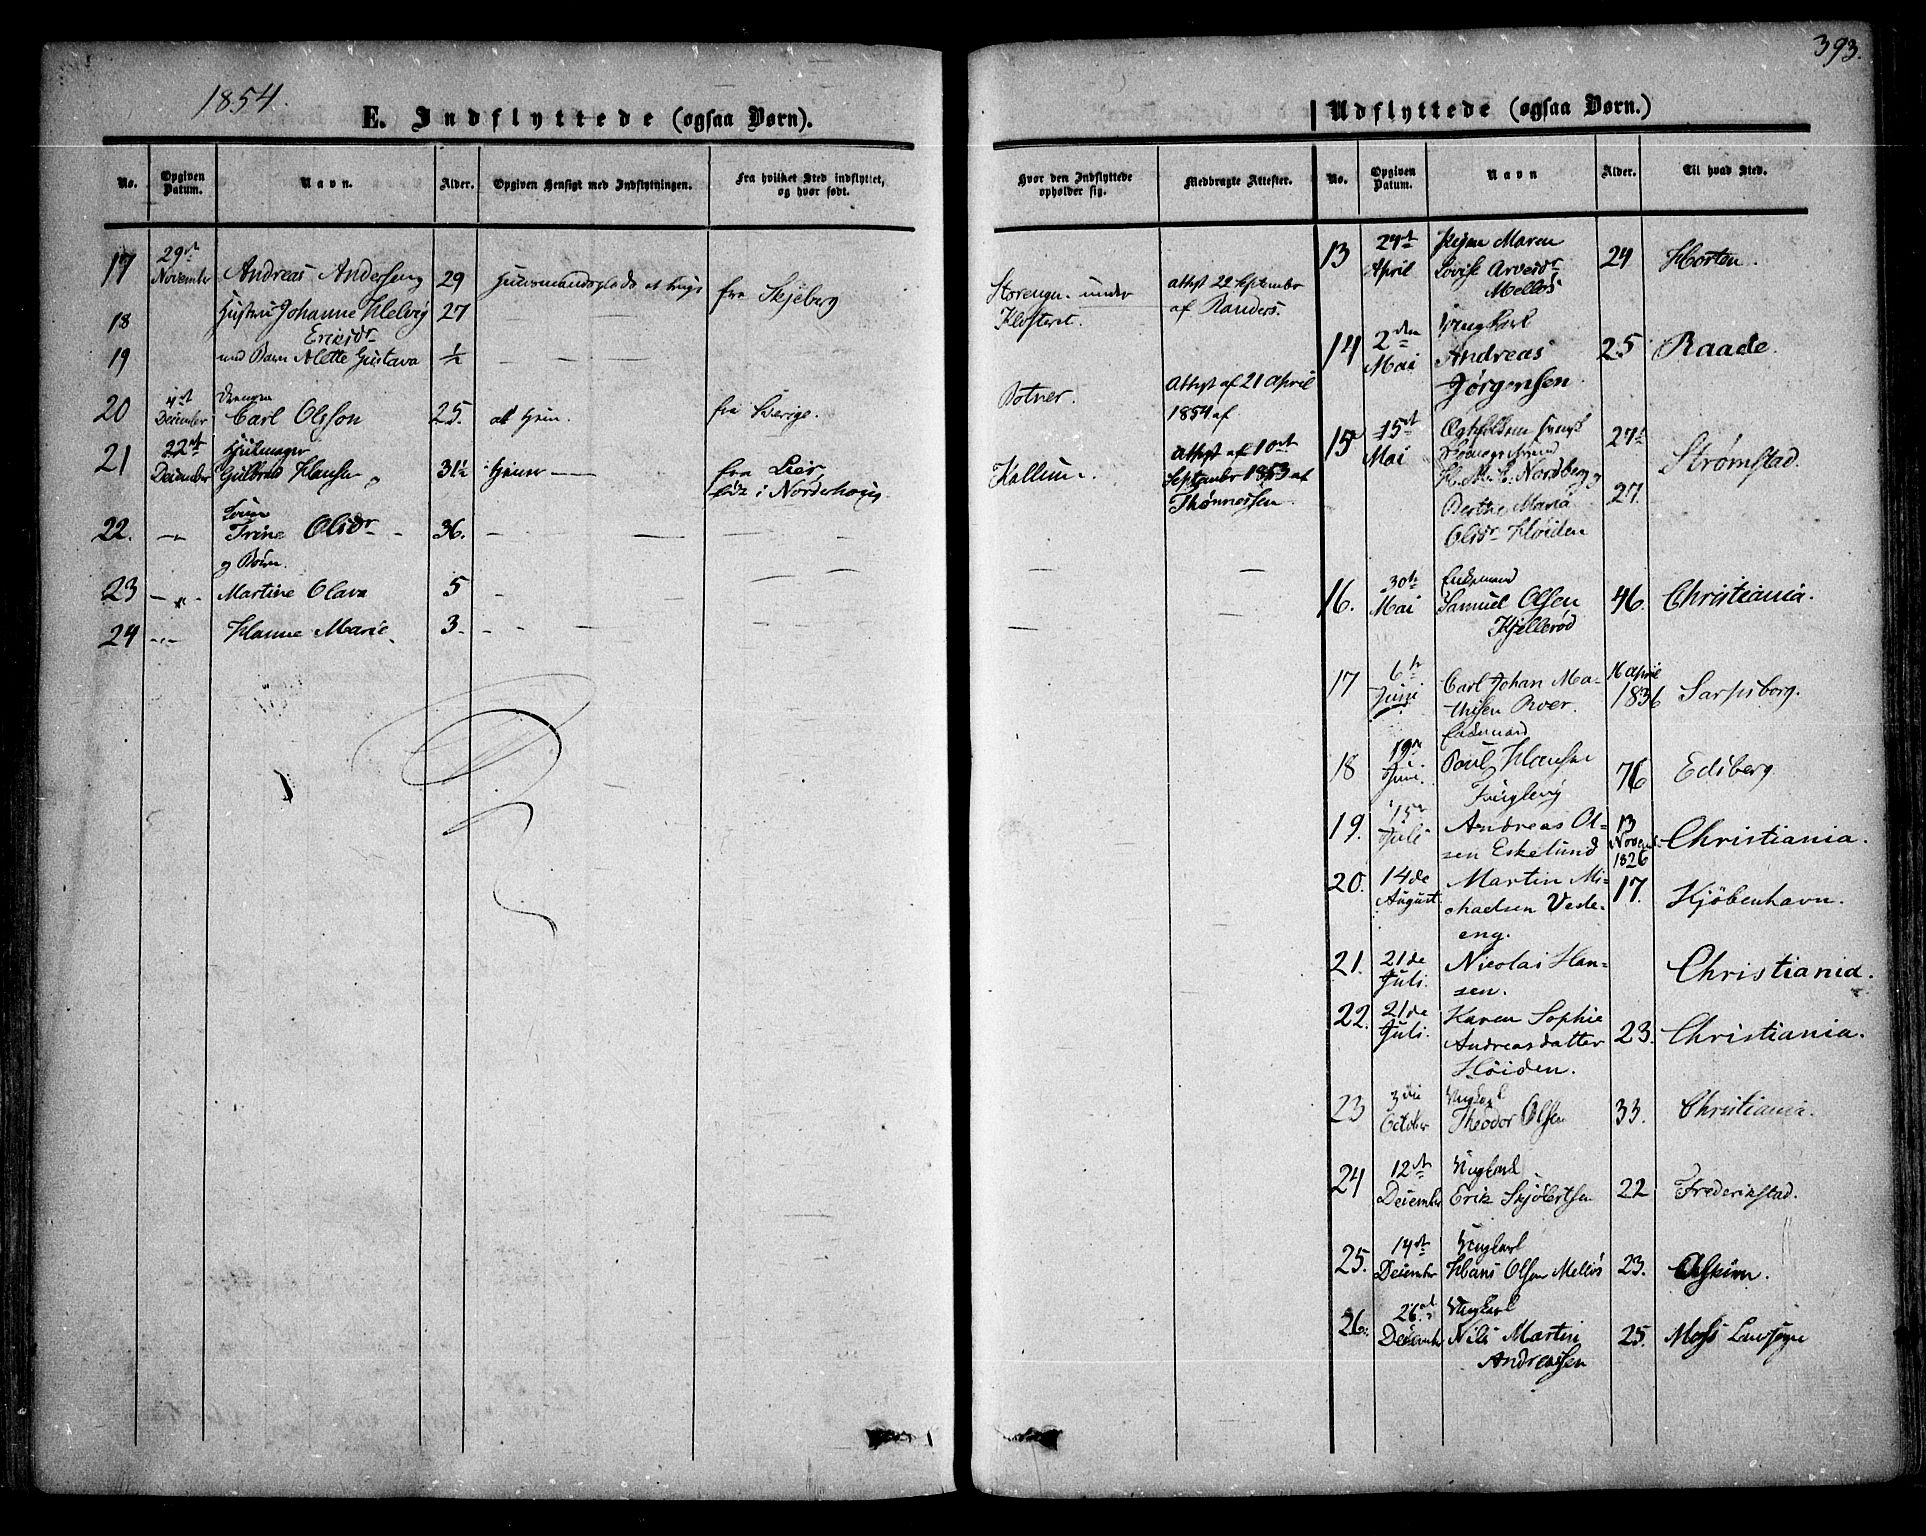 1854.
393.
E. Indflyttede (ogsaa Børn).
Udflyttede (ogsaa Børn.)
No. Opgiven Datum. Navn. Alder. Opgiven Hensigt med Indflytningen. Fra hvilket Sted indflyttet, og hvor født.
Hvor den Indflyttede opholder sig. Medbragte Attester. No. Opgiven Datum. Navn Alder. Til hvad Sted.
17 29 November Andreas Andersen 29 Huusmandsplads at bruge fra Skjeberg
Storengn. under Klosteret. attest 22 September af Randers.
18 Hustru Johanne Helvig Eriksdr 27
19 med Barn Alette Gustava ½ — — — —
20 4 December Drengen Carl Olsson 25. at tjene. fra Sverige.
Botner. Attest af 21 April 1854 af
21 22 December Hjulmager Gulbrand Hansen 31½ tjener — fra Lier
født i Norderhoug.
Kallum. Attest af 10 September 1853 af Thønnessen.
22. Trine Olsdr 36. — — —
og Børn.
23 Martine Olava 5 — — —
24 Hanne Marie 3. — — —
13 24 April Maren Lovise Arvesdr Mellös 24 Horten.
14 2den Mai Ungkarl Andreas Jörgensen 25 Raade.
15 15 Mai H. M. C. Nordberg og Berthe Maria Olsdr Høiden 27. Strømstad.
16. 30 Mai Samuel Olsen Kjellerød 46. Christiania.
17 6 Juni Carl Johan Ma-
thisen Roer. 16 April 1836 Sarpsborg.
18 19 Juni. Ladsmand Poul Hansen Fuglevig 76 Edsberg
19. 15 Juli Andreas Ol-
sen Eskelund 13 Novemb. 1826 Christiania.
20. 14de August Martin Mi-
chaelsen Vede-
eng. 17. Kjöbenhavn.
21. 21de Juli. Nicolai Han-
sen. Christiania.
22. 21de Juli. Karen Sophie
Andreasdatter
Höiden. 23. Christiania.
23 3die October Ungkarl Theodor Olsen 33. Christiania.
24 12 December Ungkarl Erik Skjölertsen 22 Frederikstad.
25. 14 December Ungkarl Hans Olsen Mellös 23. Askim.
26. 26 December Ungkarl Nils Martin
Andreassen 25. Moss Landsogn